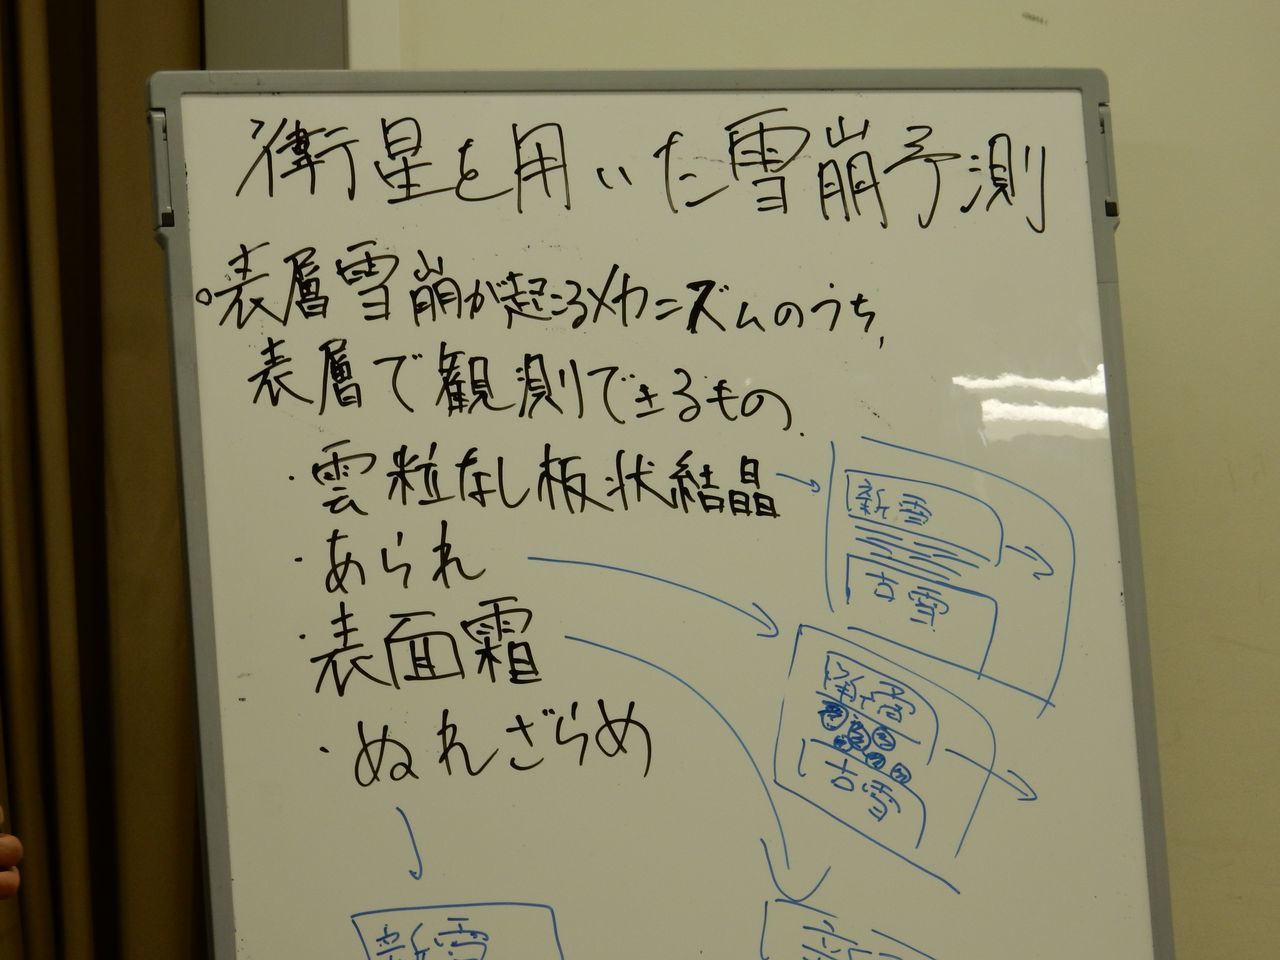 衛星を用いた雪崩予測
○表層雪崩が起こるメカニズムのうち,
表層で観測できるもの.
・雲粒なし板状結晶
・あられ
・表面霜
・ぬれざらめ
新雪
古雪
新雪
古雪
新雪